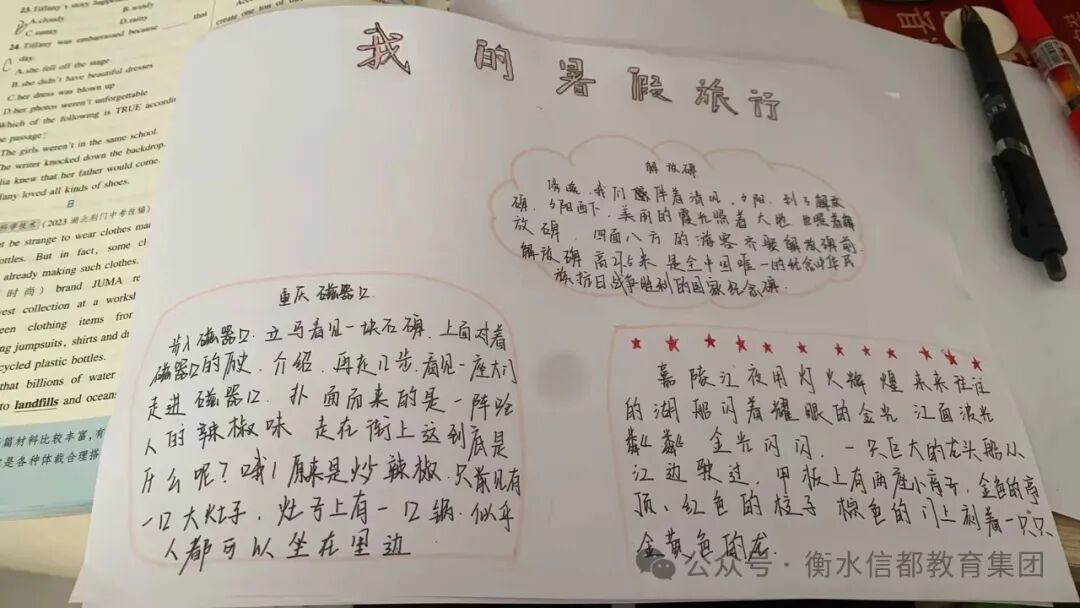 23. Tiffany's story happened
A. cloudy
B. windy
C. sunny
D. rainy
24. Tiffany was embarrassed because
day.
A. she fell off the stage
B. she didn't have beautiful dresses
C. her dress was blown up
D. her photos weren't unforgettable
Which of the following is TRUE according
he passage?
The girls weren't in the same school.
The writer knocked down the backdrop.
lia knew that her father would come.
fany loved all kinds of shoes.
B
科学技术 (2023 湖北荆门中考改编)
t be strange to wear clothes ma
ottles. But in fact, some cl
already making such clothes.
时尚) brand JUMA re
west collection at a worksh
een clothing items from
ng jumpsuits, shirts and dr
cycled plastic bottles.
that billions of water
to landfills and oceans
篇材料比较丰富,有
是各种体裁合理搭
我的暑假旅行
解放碑
傍晚,我们伴着清风,夕阳,到了解放
碑,夕阳西下,美丽的霞光照着大地
放碑,四面八方的游客齐聚解放碑前.
解放碑高27.5米是全中国唯一的纪念中华民
族抗日战争胜利的国家纪念碑.
重庆磁器口
前入磁器口,立马看见一块石碑,上面对着
磁器口的历史,介绍,再走几步,看见一座大门
走进磁器口,扑面而来的是一阵呛
人的辣椒味 走在街上这到底是
什么呢?哦!原来是炒辣椒,只前见有
一口大灶子,灶子上有一口锅,似乎
人都可以坐在里边
嘉陵江夜用灯火辉煌 来来往往
的湖船闪着耀眼的金光 江面波光
粼粼 金光闪闪,一只巨大的龙头船从
江边驶过,甲板上有两座小亭子,金色的亭
顶、红色的柱子 棕色的门上刻着一只只
金黄色的龙.
公众号·衡水信都教育集团